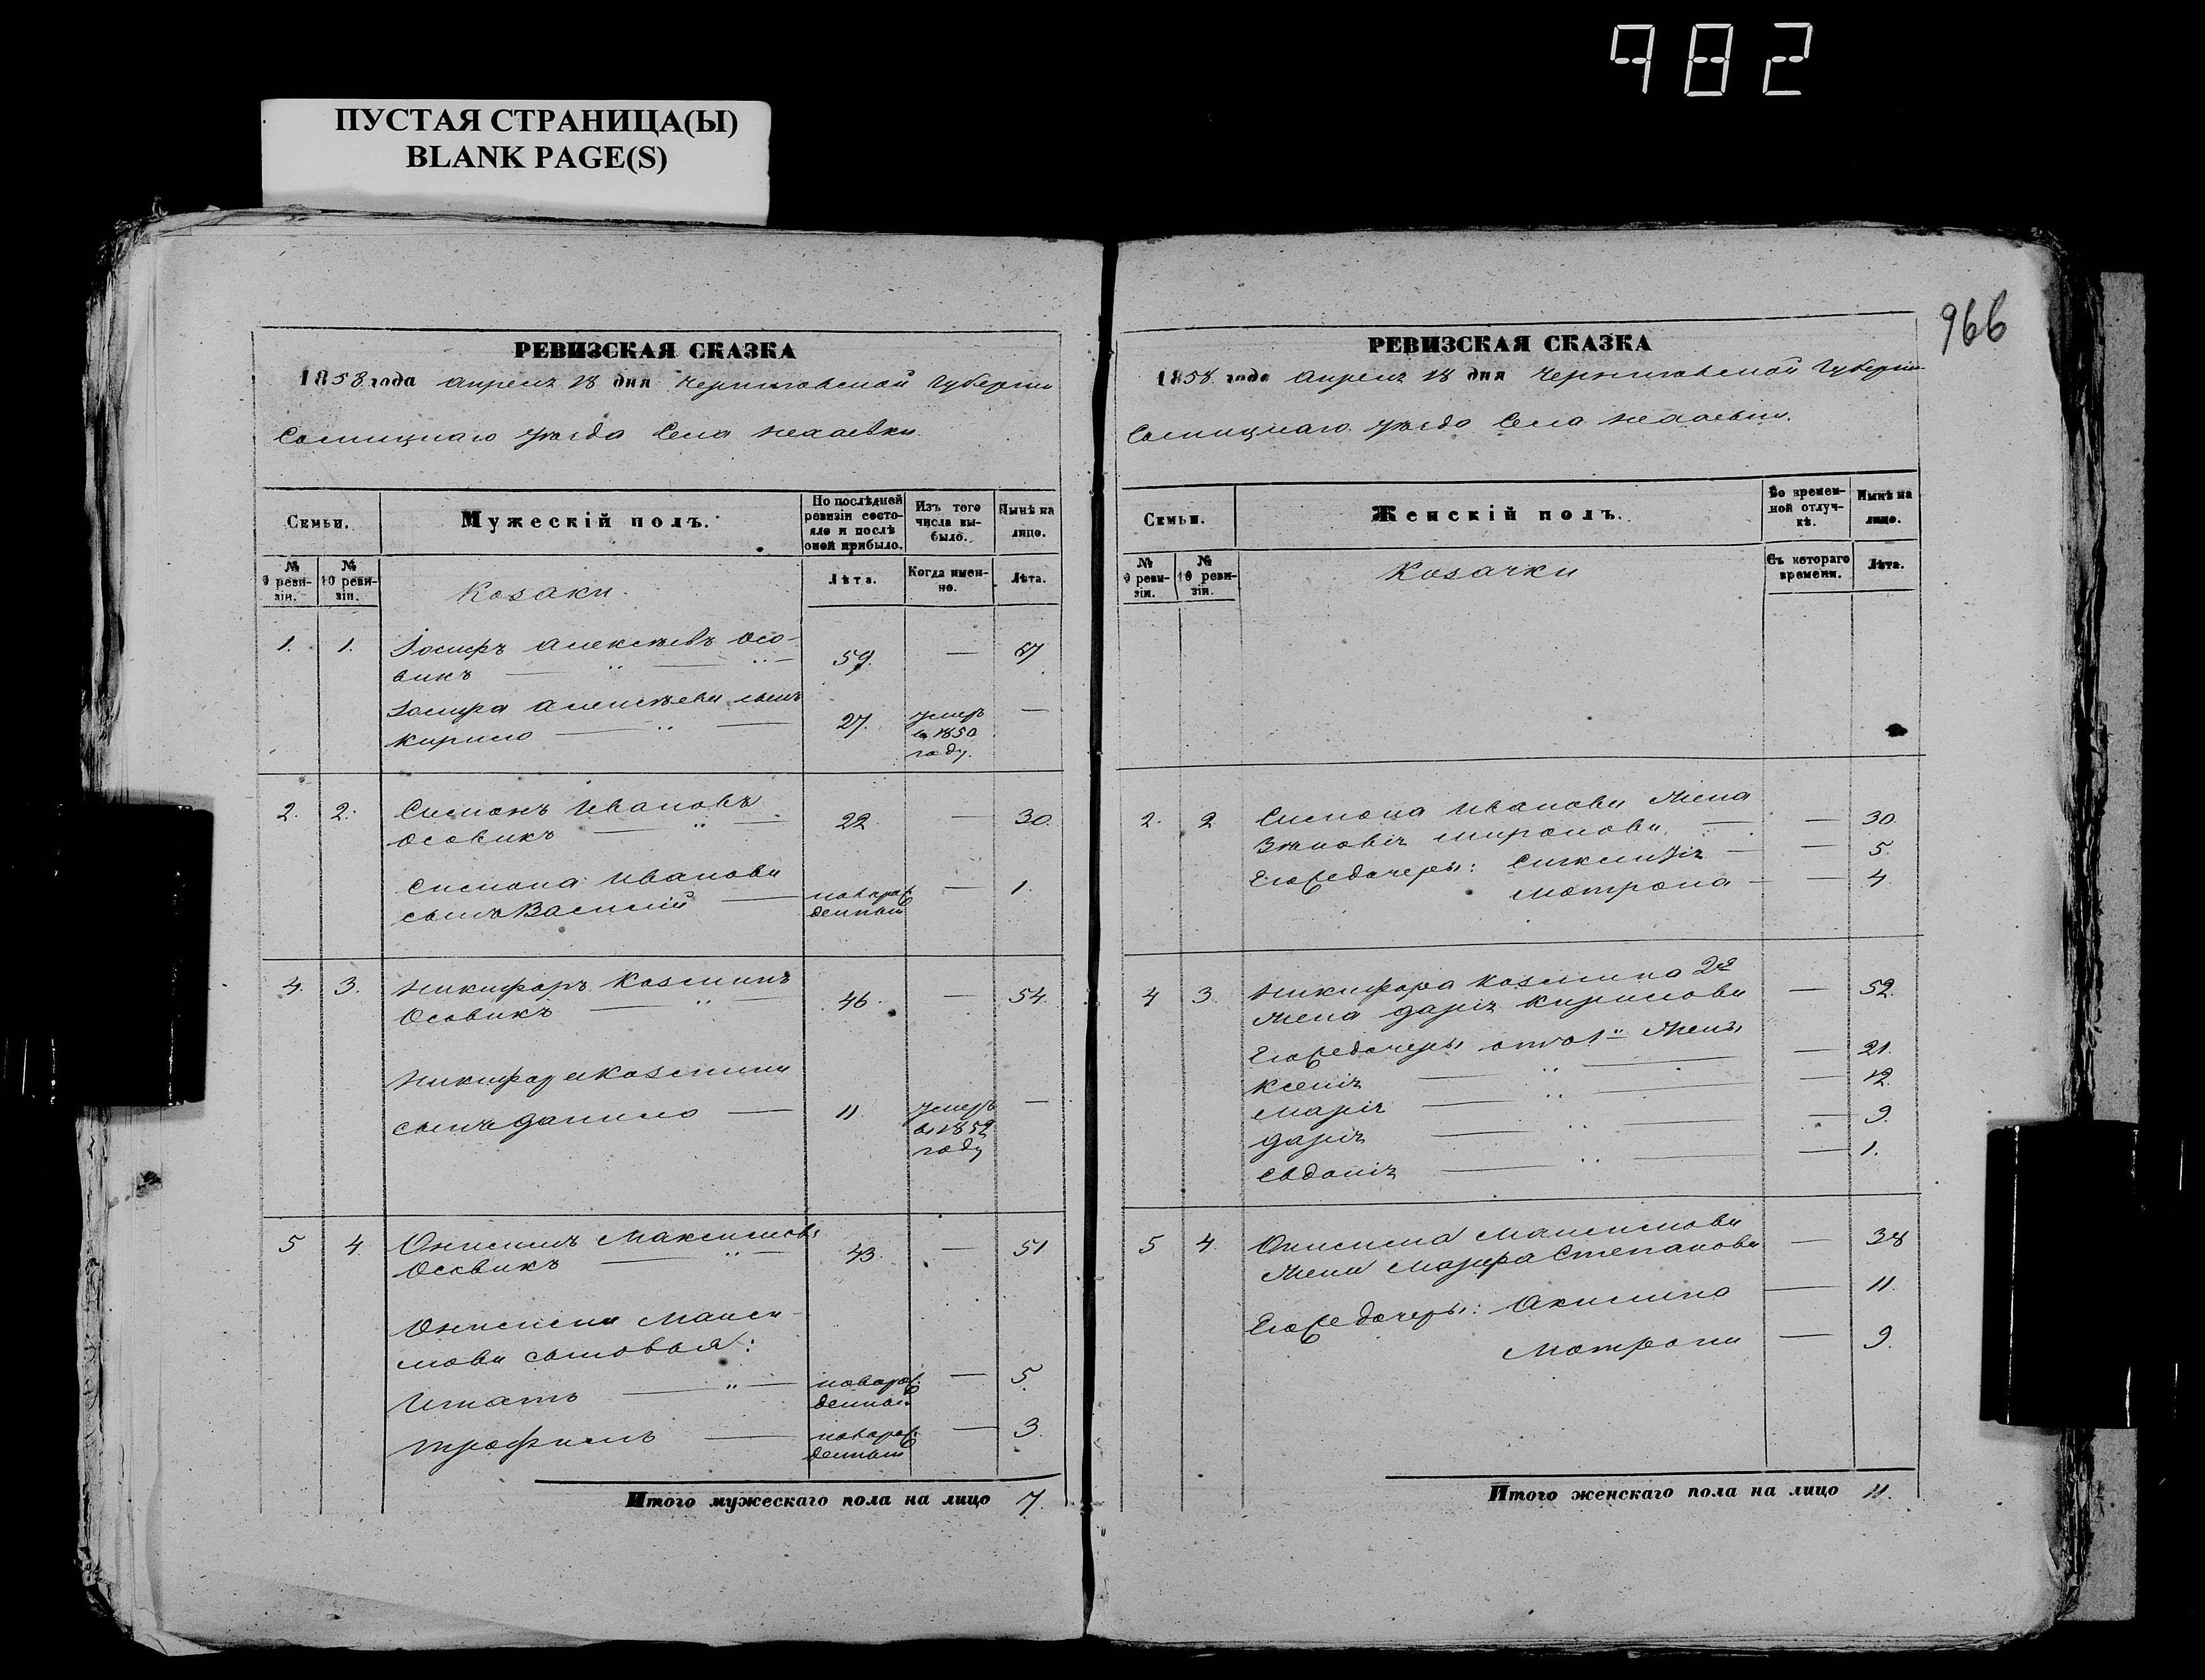 982
ПУСТАЯ СТРАНИЦА(Ы)
BLANK PAGE(S)
РЕВИЗСКАЯ СКАЗКА
1858 года апреля 18 дня Черниговской Губернии
Сосницкаго уѣзда Села Нехаевки
Семьи.
Мужескій полъ.
По послѣдней ревизіи состояло и послѣ оной прибыло.
Изъ того числа выбыло.
Нынѣ на лицо.
№ 9 ревизіи.
№ 10 ревизіи.
Козаки.
Лѣта.
Когда именно.
Лѣта.
1. 1. Іосифъ Алексѣевъ Осо-
викъ 59. — 67
Іосифа Алексѣева сынъ
Кирило 27. умеръ
въ 1850
году. —
2. 2. Симонъ Ивановъ
Осовикъ 22 — 30.
Симона Иванова
сынъ Василій новорож
денный — 1.
4. 3. Никифоръ Козминъ
Осовикъ 46. — 54.
Никифора Козмина
сынъ Данило — 11 умеръ
въ 1852
году —
5 4. Онисимъ Максимовъ
Осовикъ 43. — 51
Онисима Макси-
мова сыновья:
Игнатъ новорож
денный — 5.
Трофимъ новорож
денный — 3.
Итого мужескаго пола на лицо 7.
966
РЕВИЗСКАЯ СКАЗКА
1858 года апреля 18 дня Черниговской Губернии
Сосницкаго уѣзда Села Нехаевки.
Семьи.
Женскій полъ.
Во временной отлучкѣ.
Нынѣ на лицо.
№ 9 ревизіи.
№ 10 ревизіи.
Козачки
Съ котораго времени.
Лѣта.
2. 2 Симона Иванова жена
Зѣновія Миронова — 30
Его же дочери: — 5.
Мотрона — 4.
4 3. Никифора Козмина 2я
жена Дарія Кирилова — 52.
Его же дочери от 1й жены
Ксенія — 21.
Марія — 12.
Дарія — 9.
Евдокія — 1.
5 4. Онисима Максимова
жена Марфа Степанова — 38
Его же дочери: Акилина — 11.
Мотрона — 9.
Итого женскаго пола на лицо 11.